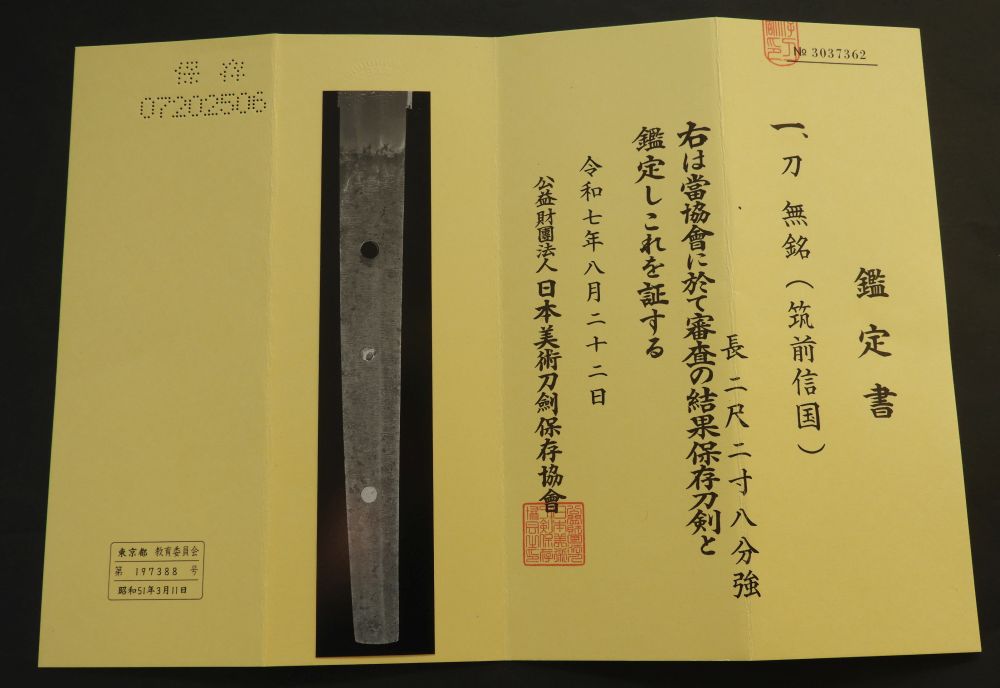 № 3037362
鑑定書
一、刀 無銘(筑前信国)
長 二尺二寸八分強
右は當協會に於て審査の結果保存刀剣と
鑑定しこれを証する
令和七年八月二十二日
公益財團法人日本美術刀劍保存協會
保存
07202506
東京都 教育委員会
第 197388 号
昭和51年3月11日